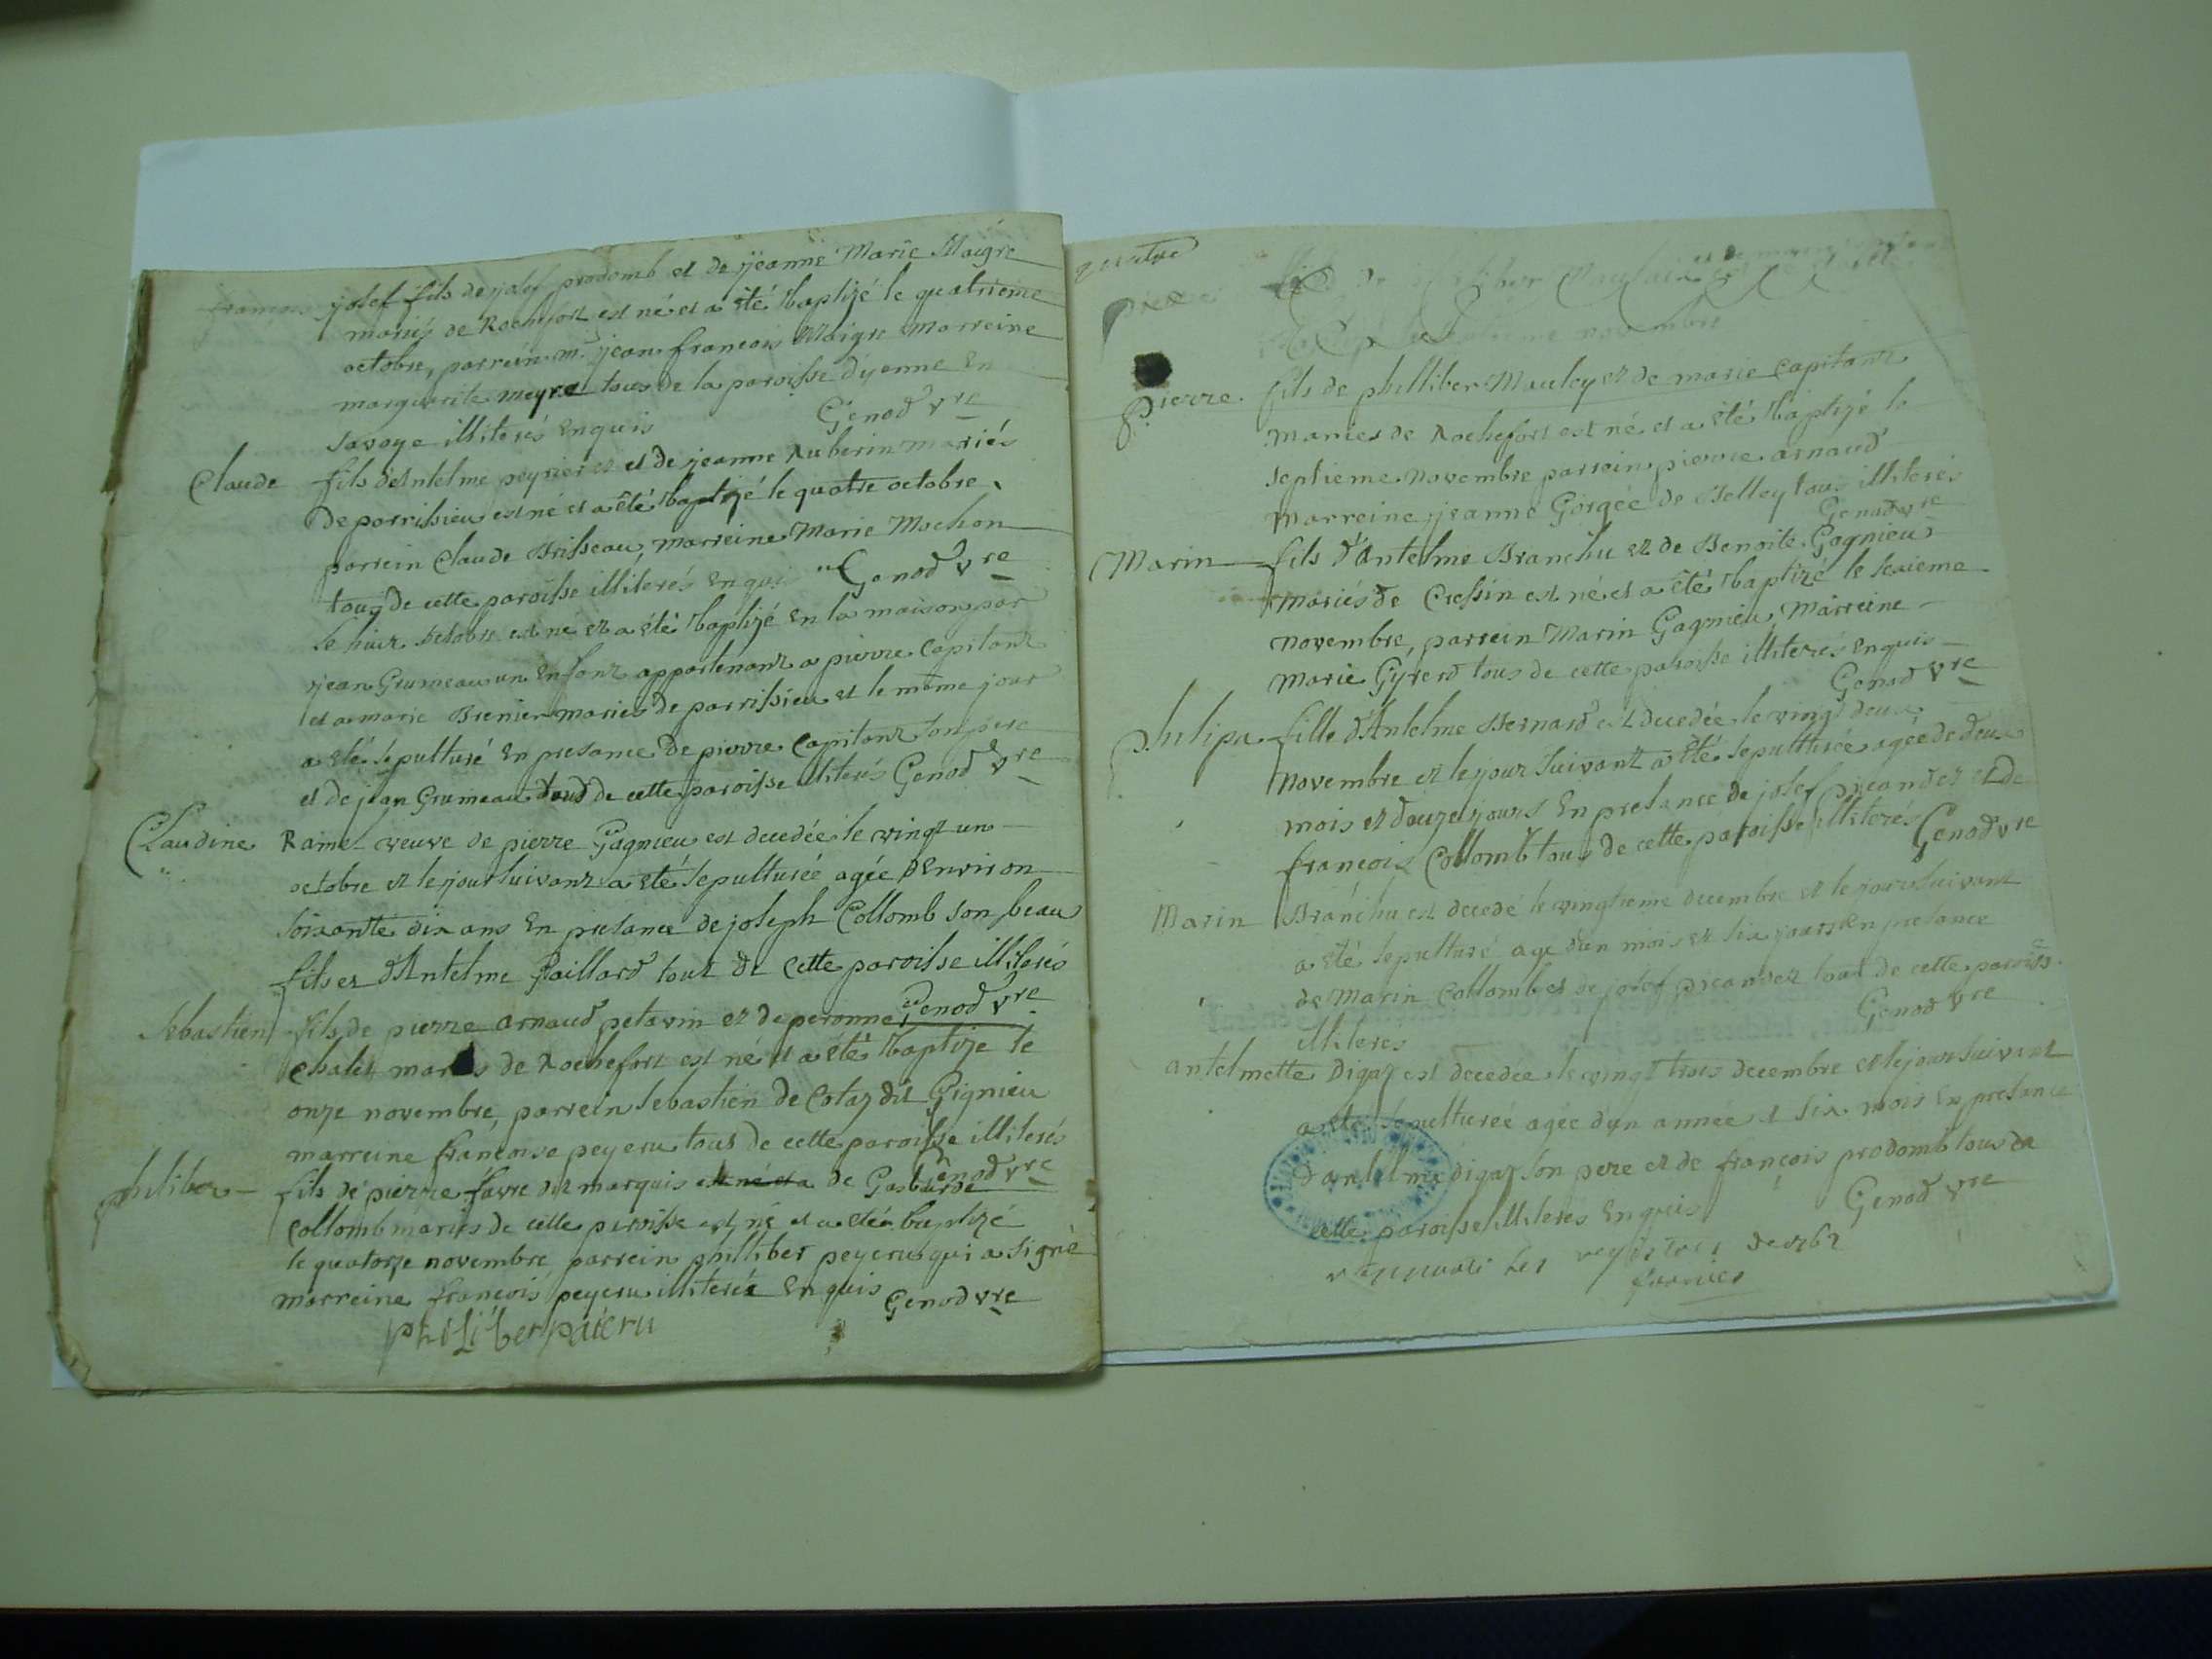 françois josef fils de josef prodomb et de jeanne Marie Maigre
mariés de Rochefort est né et a été baptizé le quatrieme
octobre, parrein mr jean françois Maigre Marreine
marguerite meyre tous de la paroisse d'yenne En
savoye illiterés Enquis Genod vre
Claude fils d'Antelme peyrieres et de jeanne Auberin mariés
de parrissieu est né et a été baptizé le quatre octobre
parrein Claude Brisseau, marreine Marie Mochon
tous de cette paroisse illiterés Enquis Genod vre
le huit octobre est né et a été baptizé En la maison par
jean Grumeau un Enfant appartenant a pierre Capitant
et a marie Brenier mariés de parrissieu et le même jour
a été sepulturé En presance de pierre Capitant son pere
et de jean Grumeau tous de cette paroisse illiterés Genod vre
Claudine Ramel veuve de pierre Gagnieu est decedée le vingt un
octobre et le jour suivant a été sepulturée agée d'Environ
soixante dix ans En presance de joseph Collomb son beau
fils et d'Antelme Paillard tout de cette paroisse illiterés
Genod vre
Sebastien fils de pierre arnaud petavin et de peronne
Chalet mariés de Rochefort est né et a été baptize le
onze novembre, parrein sebastien de Cotaz dit Gignieu
marreine francoise peyeru tous de cette paroisse illiterés
Genod vre
philiber fils de pierre favre dit marquis est né et a de Gasburde
Collomb mariés de cette paroisse est né et a été baptizé
le quatorze novembre parrein philliber peyeru qui a signé
marreine françois peyeru illiterée Enquis Genod vre
philiber paieru
quatre
septieme novembre
Pierre. fils de philliber Mauley et de marie Capitant
mariés de Rochefort est né et a été baptizé le
septieme novembre parrein pierre arnaud
marreine jeanne Gorgée de Belley tous illiterés
Genod vre
Marin fils d'Antelme Branchu et de Benoite Gagnieu
mariés de Cressin est né et a été baptizé le seizieme
novembre, parrein Marin Gagnieu, Marreine
Marie Gyrerd tous de cette paroisse illiterés Enquis
Genod vre
Philipa fille d'Antelme Bernard est decedée le vingt deux
novembre et le jour suivant a été sepulturée agée de deux
mois et douze jours En presance de josef picandet et de
françois Collomb tous de cette paroisse illiterés Genod vre
Marin Branchu est decedé le vingtieme decembre et le jour suivant
a été sepulturé agé d'un mois et six jours En presance
de Marin Collomb et de josef picandet tout de cette paroisse
illiteres Genod vre
antelmette Digaz est decedée le vingt trois decembre et le jour suivant
a été sepulturée agée d'un année et six mois En presance
d'antelme digaz son pere et de françois prodomb tous de
cette paroisse illiteres Enquis Genod vre